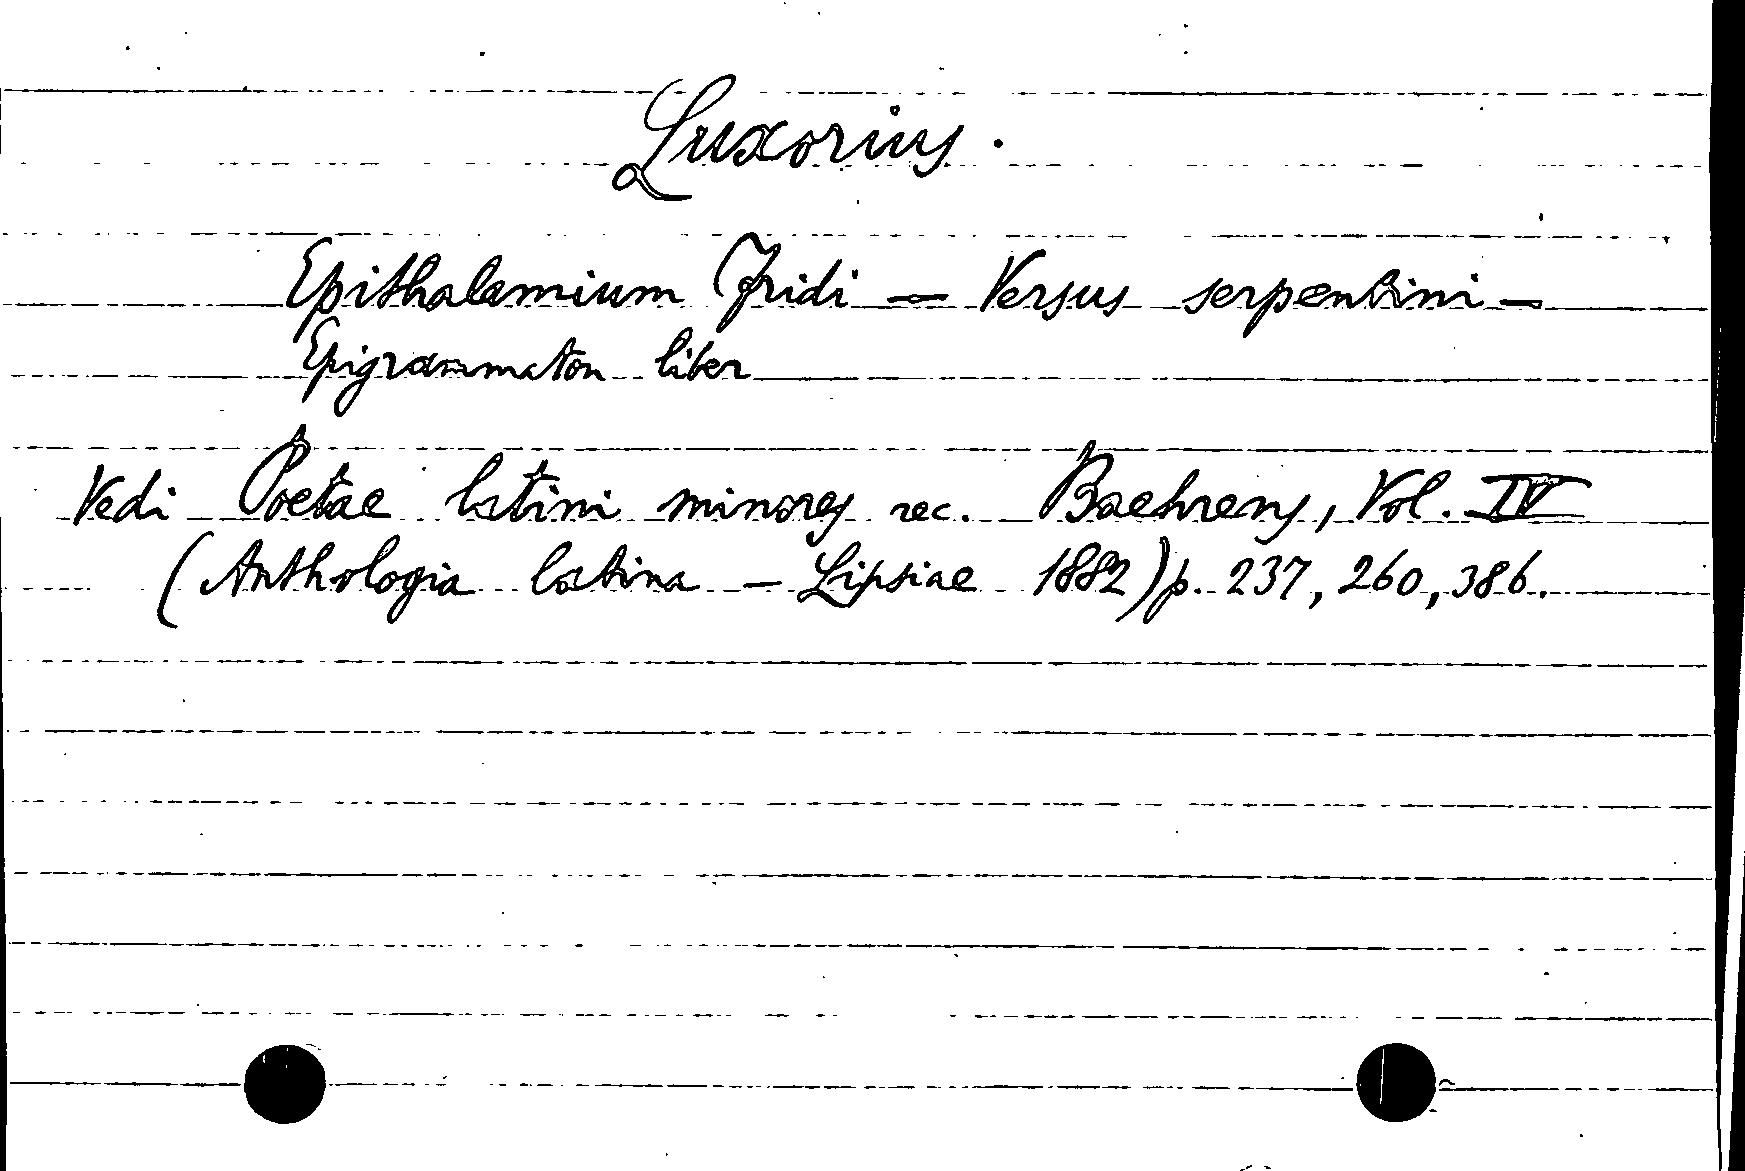 Luxorius.
Epithalamium Fridi — Versus serpentini —
Epigrammaton liber
Vedi Poetae latini minores rec. Baehrens, Vol. IV
(Anthologia latina — Lipsiae 1882) p. 237, 260, 386.